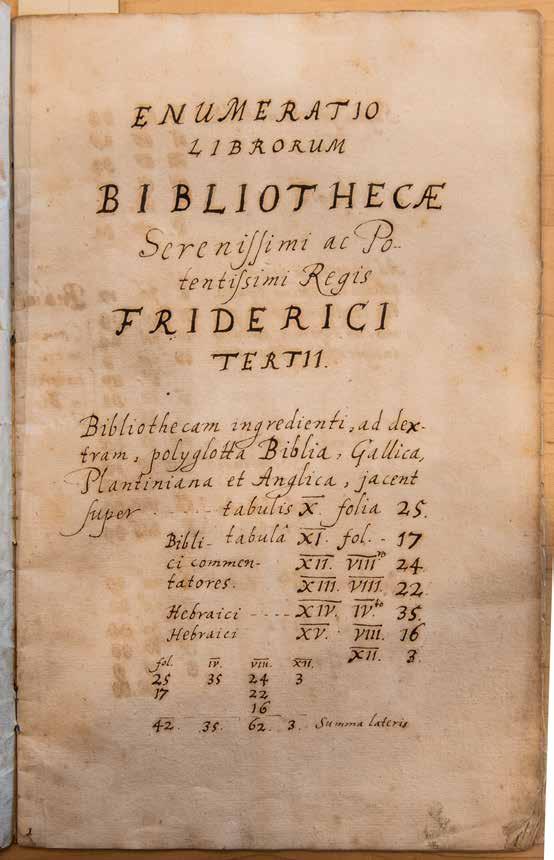 ENUMERATIO
LIBRORUM
BIBLIOTHECÆ
Serenissimi ac Po-
tentissimi Regis
FRIDERICI
TERTII.
Bibliothecam ingredienti, ad dex-
tram, polyglotta Biblia, Gallica,
Plantiniana et Anglica, jacent
super - - - - - tabulis X. folia 25.
Bibli- tabulâ XI. fol. - 17
ci commen- XII. VIIIvo 24
tatores. XIII. VIII. 22
Hebraici - - - - XIV. IV.to 35.
Hebraici XV. VIII. 16
XII. 3.
fol. IV. VIII. XII.
25 35 24 3
17 22
16
42. 35. 62. 3. Summa lateris